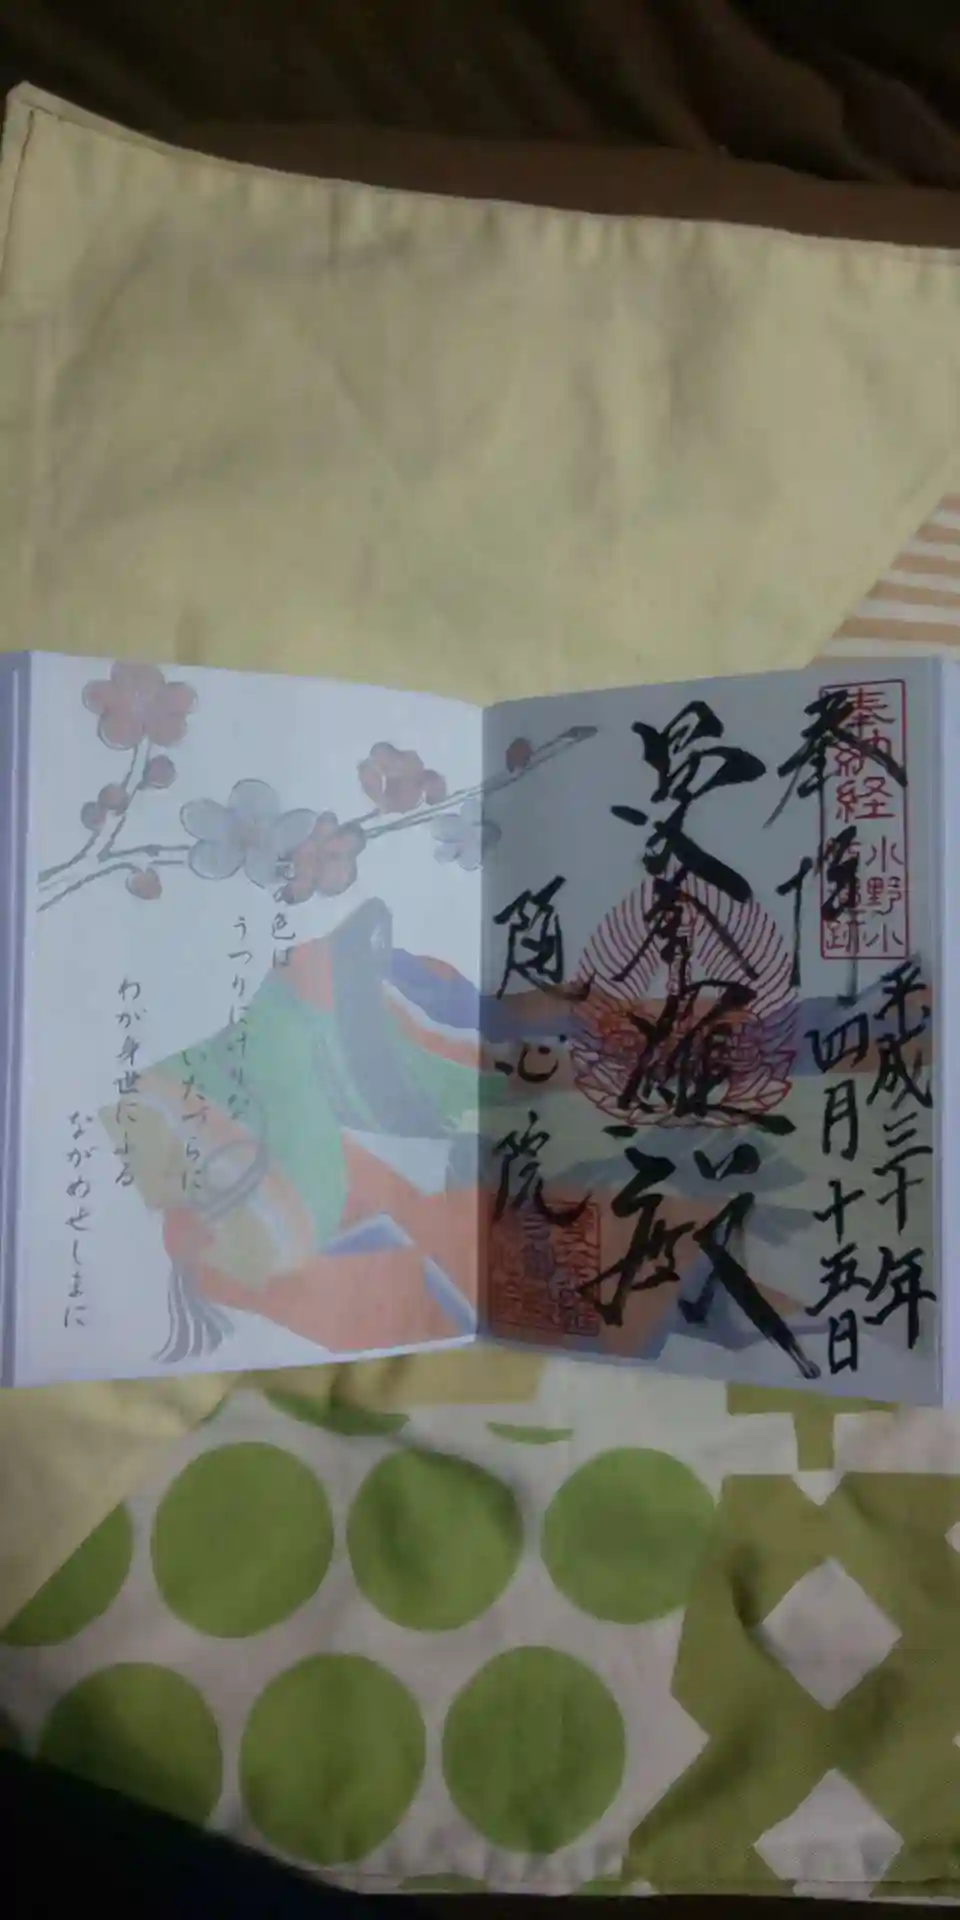 奉拝
奉納経
小野小
町旧跡
平成三十年
四月十五日
曼荼羅殿
随心院
花の色は
うつりにけりな
いたづらに
わが身世にふる
ながめせしまに